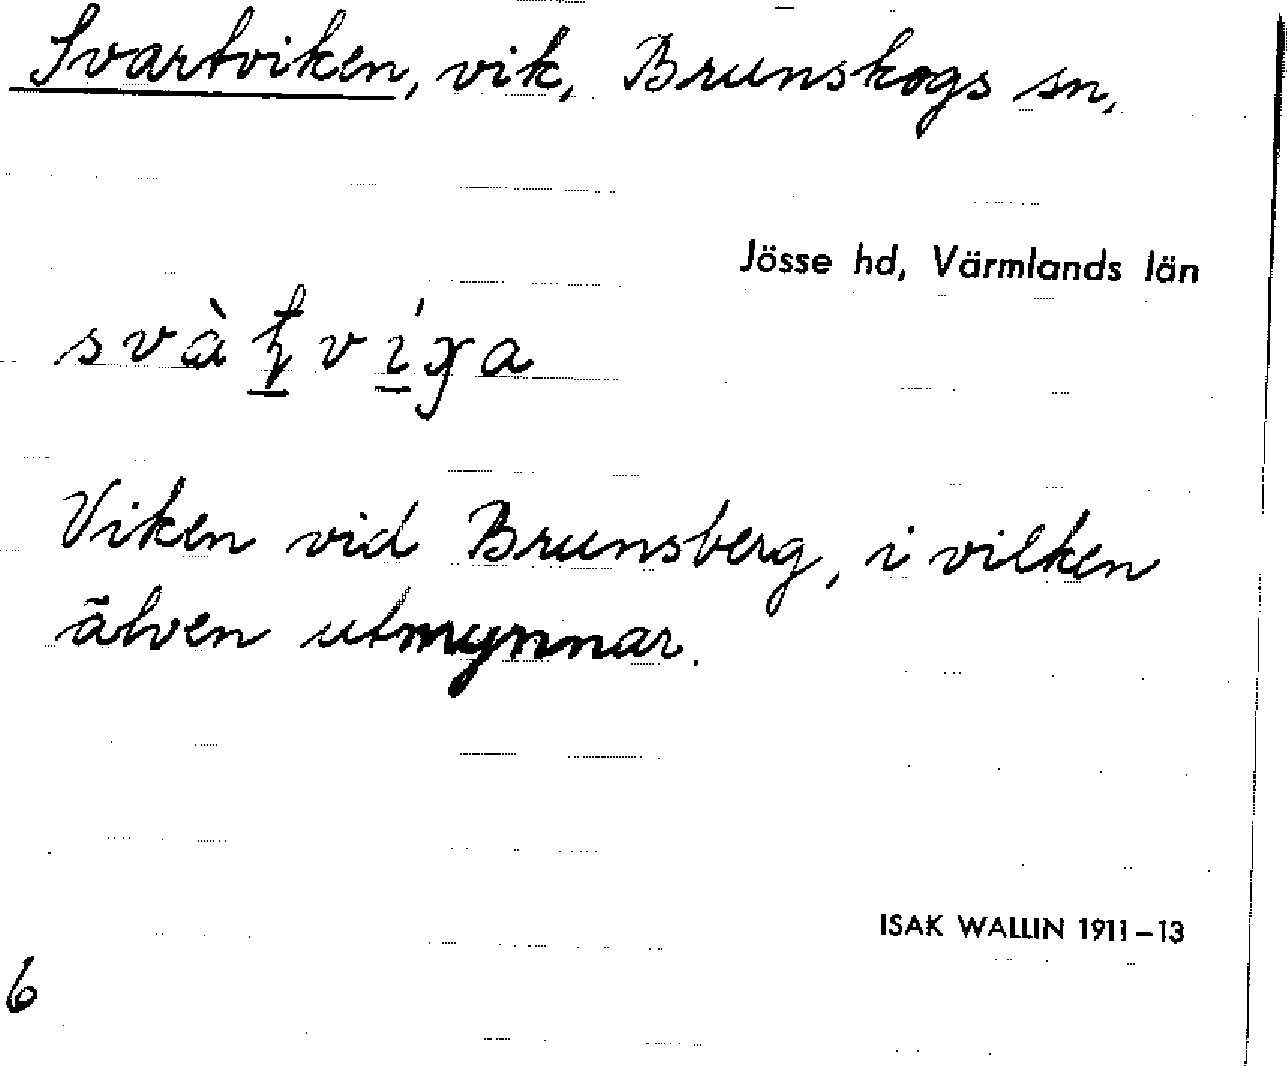 Svartviken, vik, Brunskogs sn,
Jösse hd, Värmlands län
Viken vid Brunsberg, i vilken
älven utmynnar.
ISAK WALLIN 1911–13
6